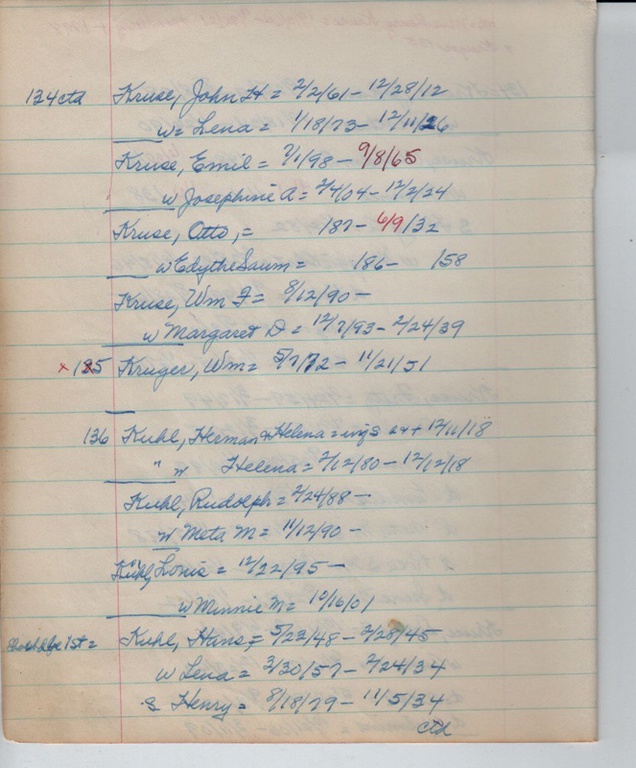 134ctd Kruse, John H = 2/2/61 - 12/28/12
w = Lena = 1/18/73 - 12/11/26
Kruse, Emil = 7/1/98 - 9/8/65
w Josephine A = 2/4/04 - 12/2/24
Kruse, Otto, = 187- 6/9/32
w Edythe Saum = 186- /58
Kruse, Wm F = 8/12/90 -
w Margaret D = 12/7/93 - 2/24/39
x 135 Kruger, Wm = 5/7/72 - 11/21/51
136 Kuhl, Herman & Helena = 12/11/18
" w Helena = 2/12/80 - 12/12/18
Kuhl, Rudolph = 2/24/88 -
w Meta M = 11/12/90 -
Kuhl, Louis = 12/22/95 -
w Minnie M = 10/16/01
1st = Kuhl, Hans = 5/23/48 - 2/28/45
w Lena = 3/30/57 - 2/24/34
s Henry = 8/18/79 - 11/5/34
ctd